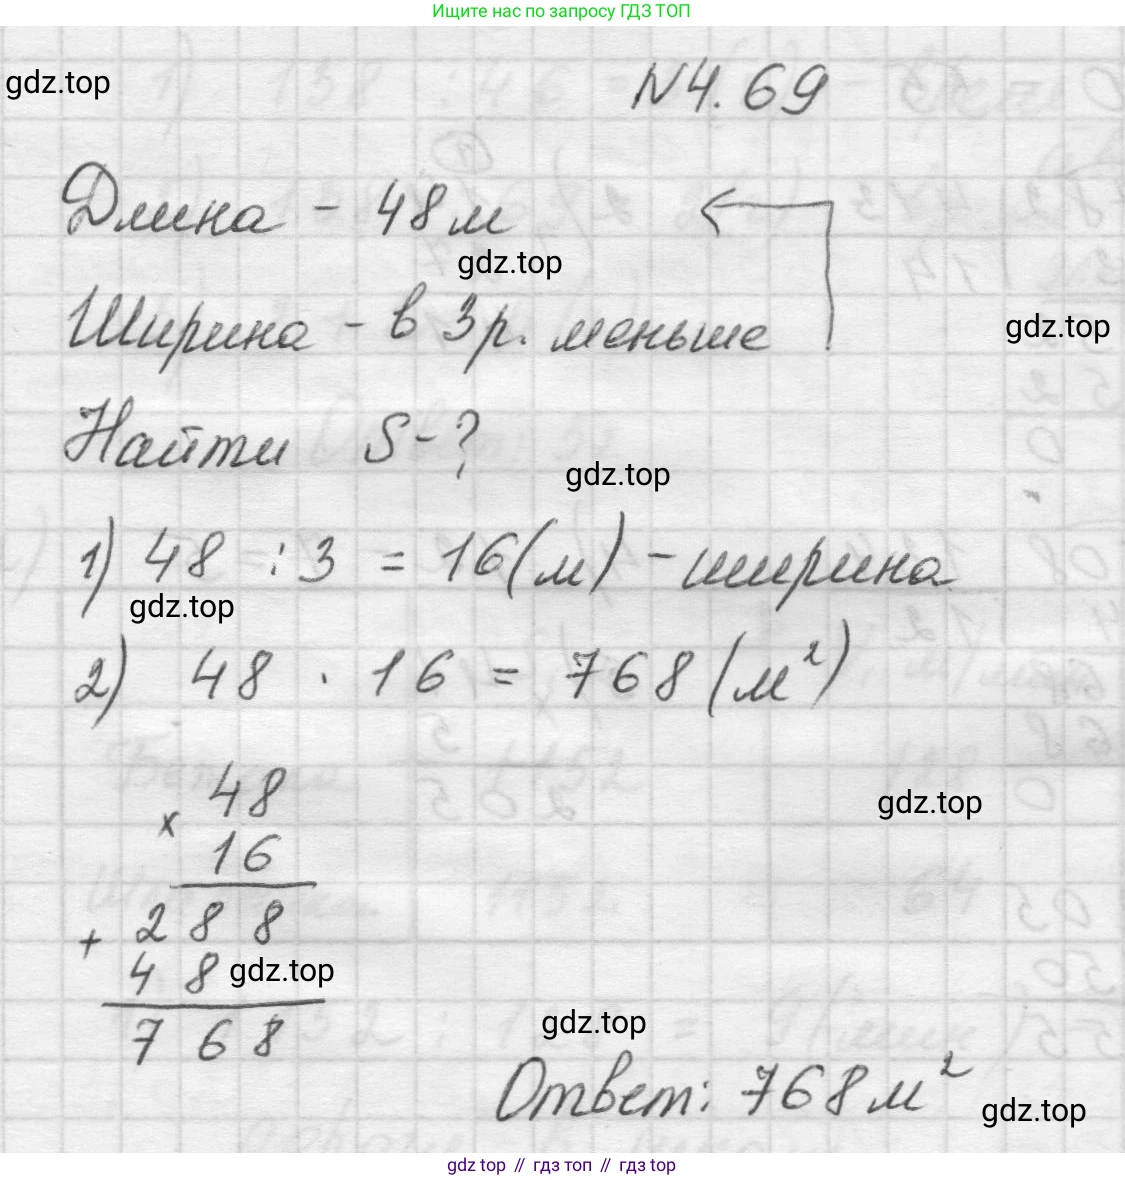 Ищите нас по запросу ГДЗ ТОП
gdz.top
N4.69
Длина - 48м
gdz.top
Ширина - в 3 р. меньше
gdz.top
Найти S-?
gdz.top
1) 48 : 3 = 16(м) - ширина
gdz.top
2) 48 · 16 = 768 (м²)
48
x
gdz.top
16
288
+
48
gdz.top
768
gdz.top
Ответ: 768м²
gdz.top
gdz top // гдз топ // гдз top